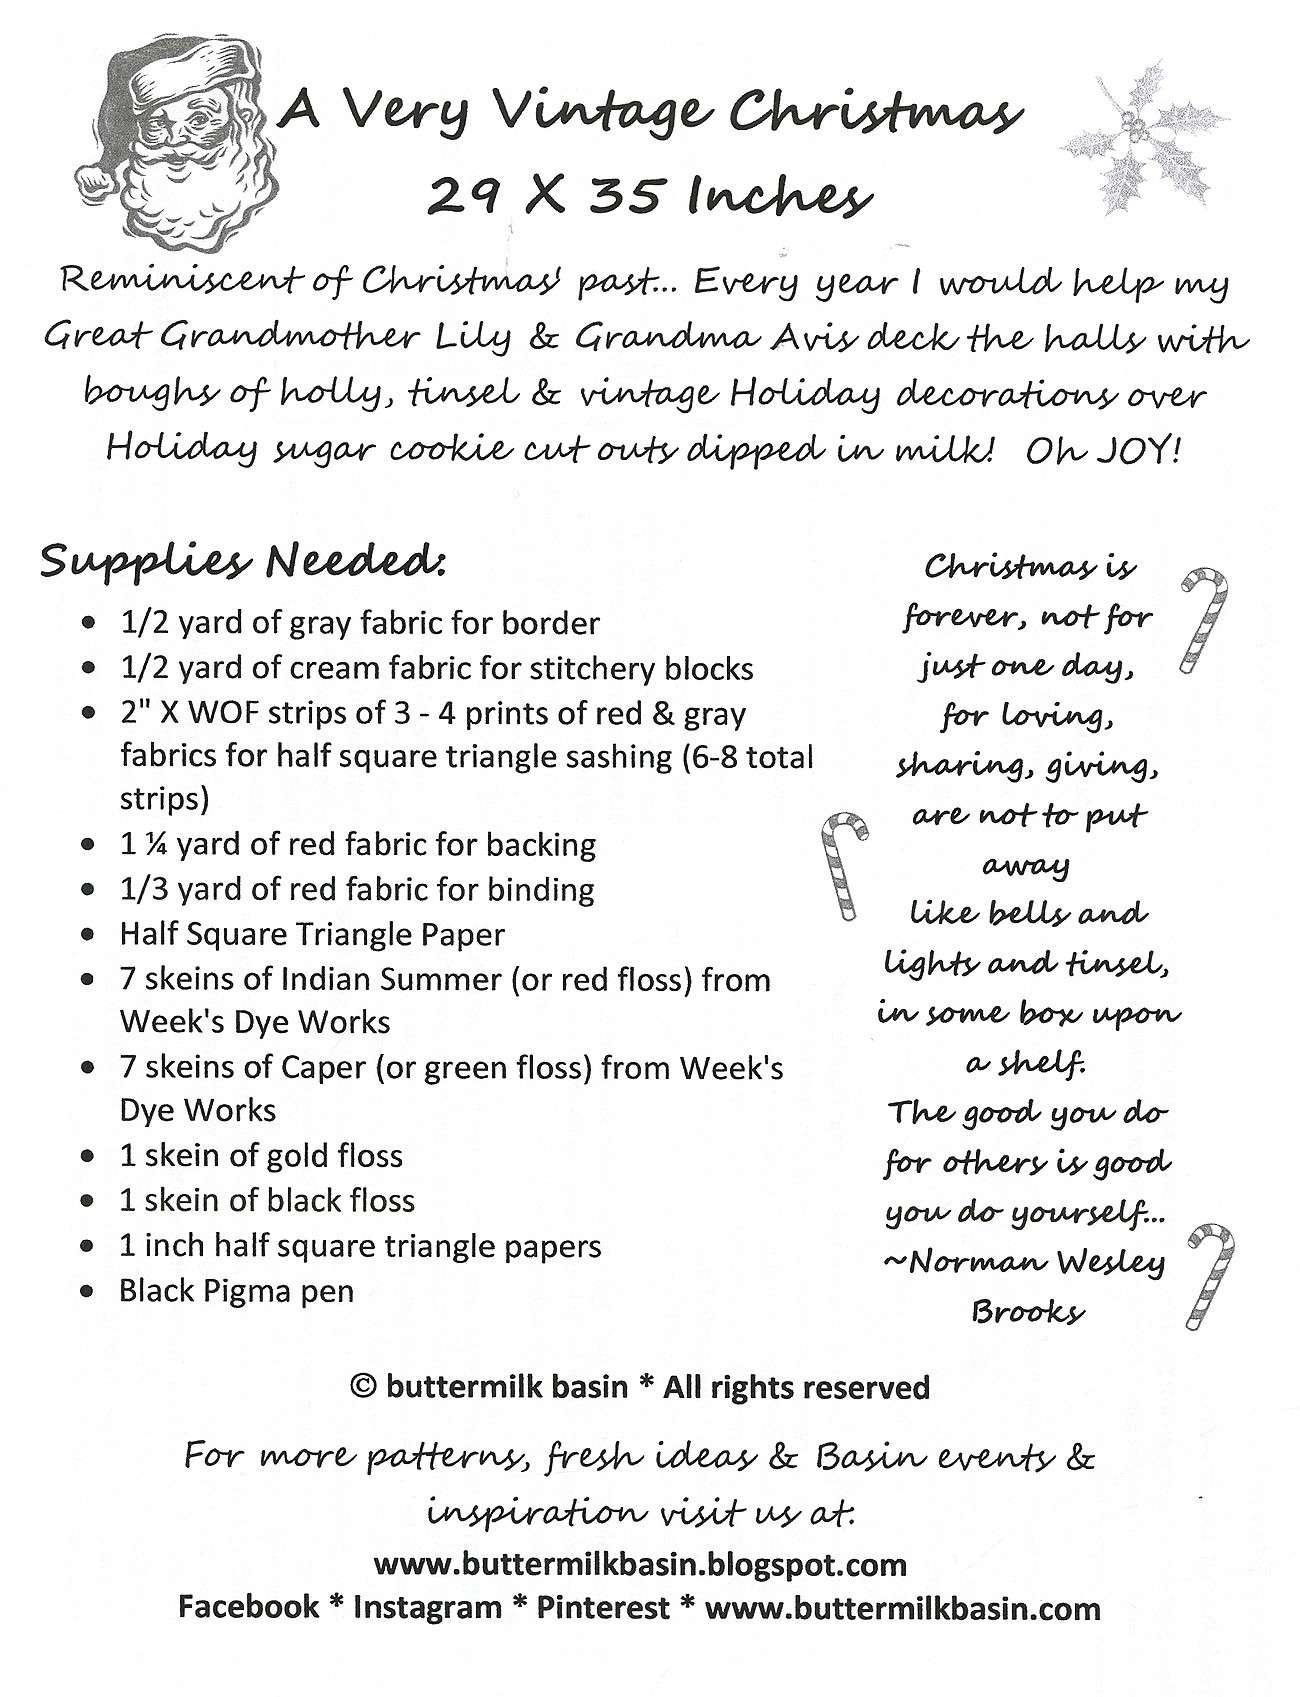 A Very Vintage Christmas
29 X 35 Inches
Reminiscent of Christmas' past... Every year I would help my
Great Grandmother Lily & Grandma Avis deck the halls with
boughs of holly, tinsel & vintage Holiday decorations over
Holiday sugar cookie cut outs dipped in milk! Oh JOY!
Supplies Needed:
• 1/2 yard of gray fabric for border
• 1/2 yard of cream fabric for stitchery blocks
• 2" X WOF strips of 3 - 4 prints of red & gray
fabrics for half square triangle sashing (6-8 total
strips)
• 1 ¼ yard of red fabric for backing
• 1/3 yard of red fabric for binding
• Half Square Triangle Paper
• 7 skeins of Indian Summer (or red floss) from
Week's Dye Works
• 7 skeins of Caper (or green floss) from Week's
Dye Works
• 1 skein of gold floss
• 1 skein of black floss
• 1 inch half square triangle papers
• Black Pigma pen
Christmas is
forever, not for
just one day,
for loving,
sharing, giving,
are not to put
away
like bells and
lights and tinsel,
in some box upon
a shelf.
The good you do
for others is good
you do yourself...
~Norman Wesley
Brooks
© buttermilk basin * All rights reserved
For more patterns, fresh ideas & Basin events &
inspiration visit us at:
www.buttermilkbasin.blogspot.com
Facebook * Instagram * Pinterest * www.buttermilkbasin.com